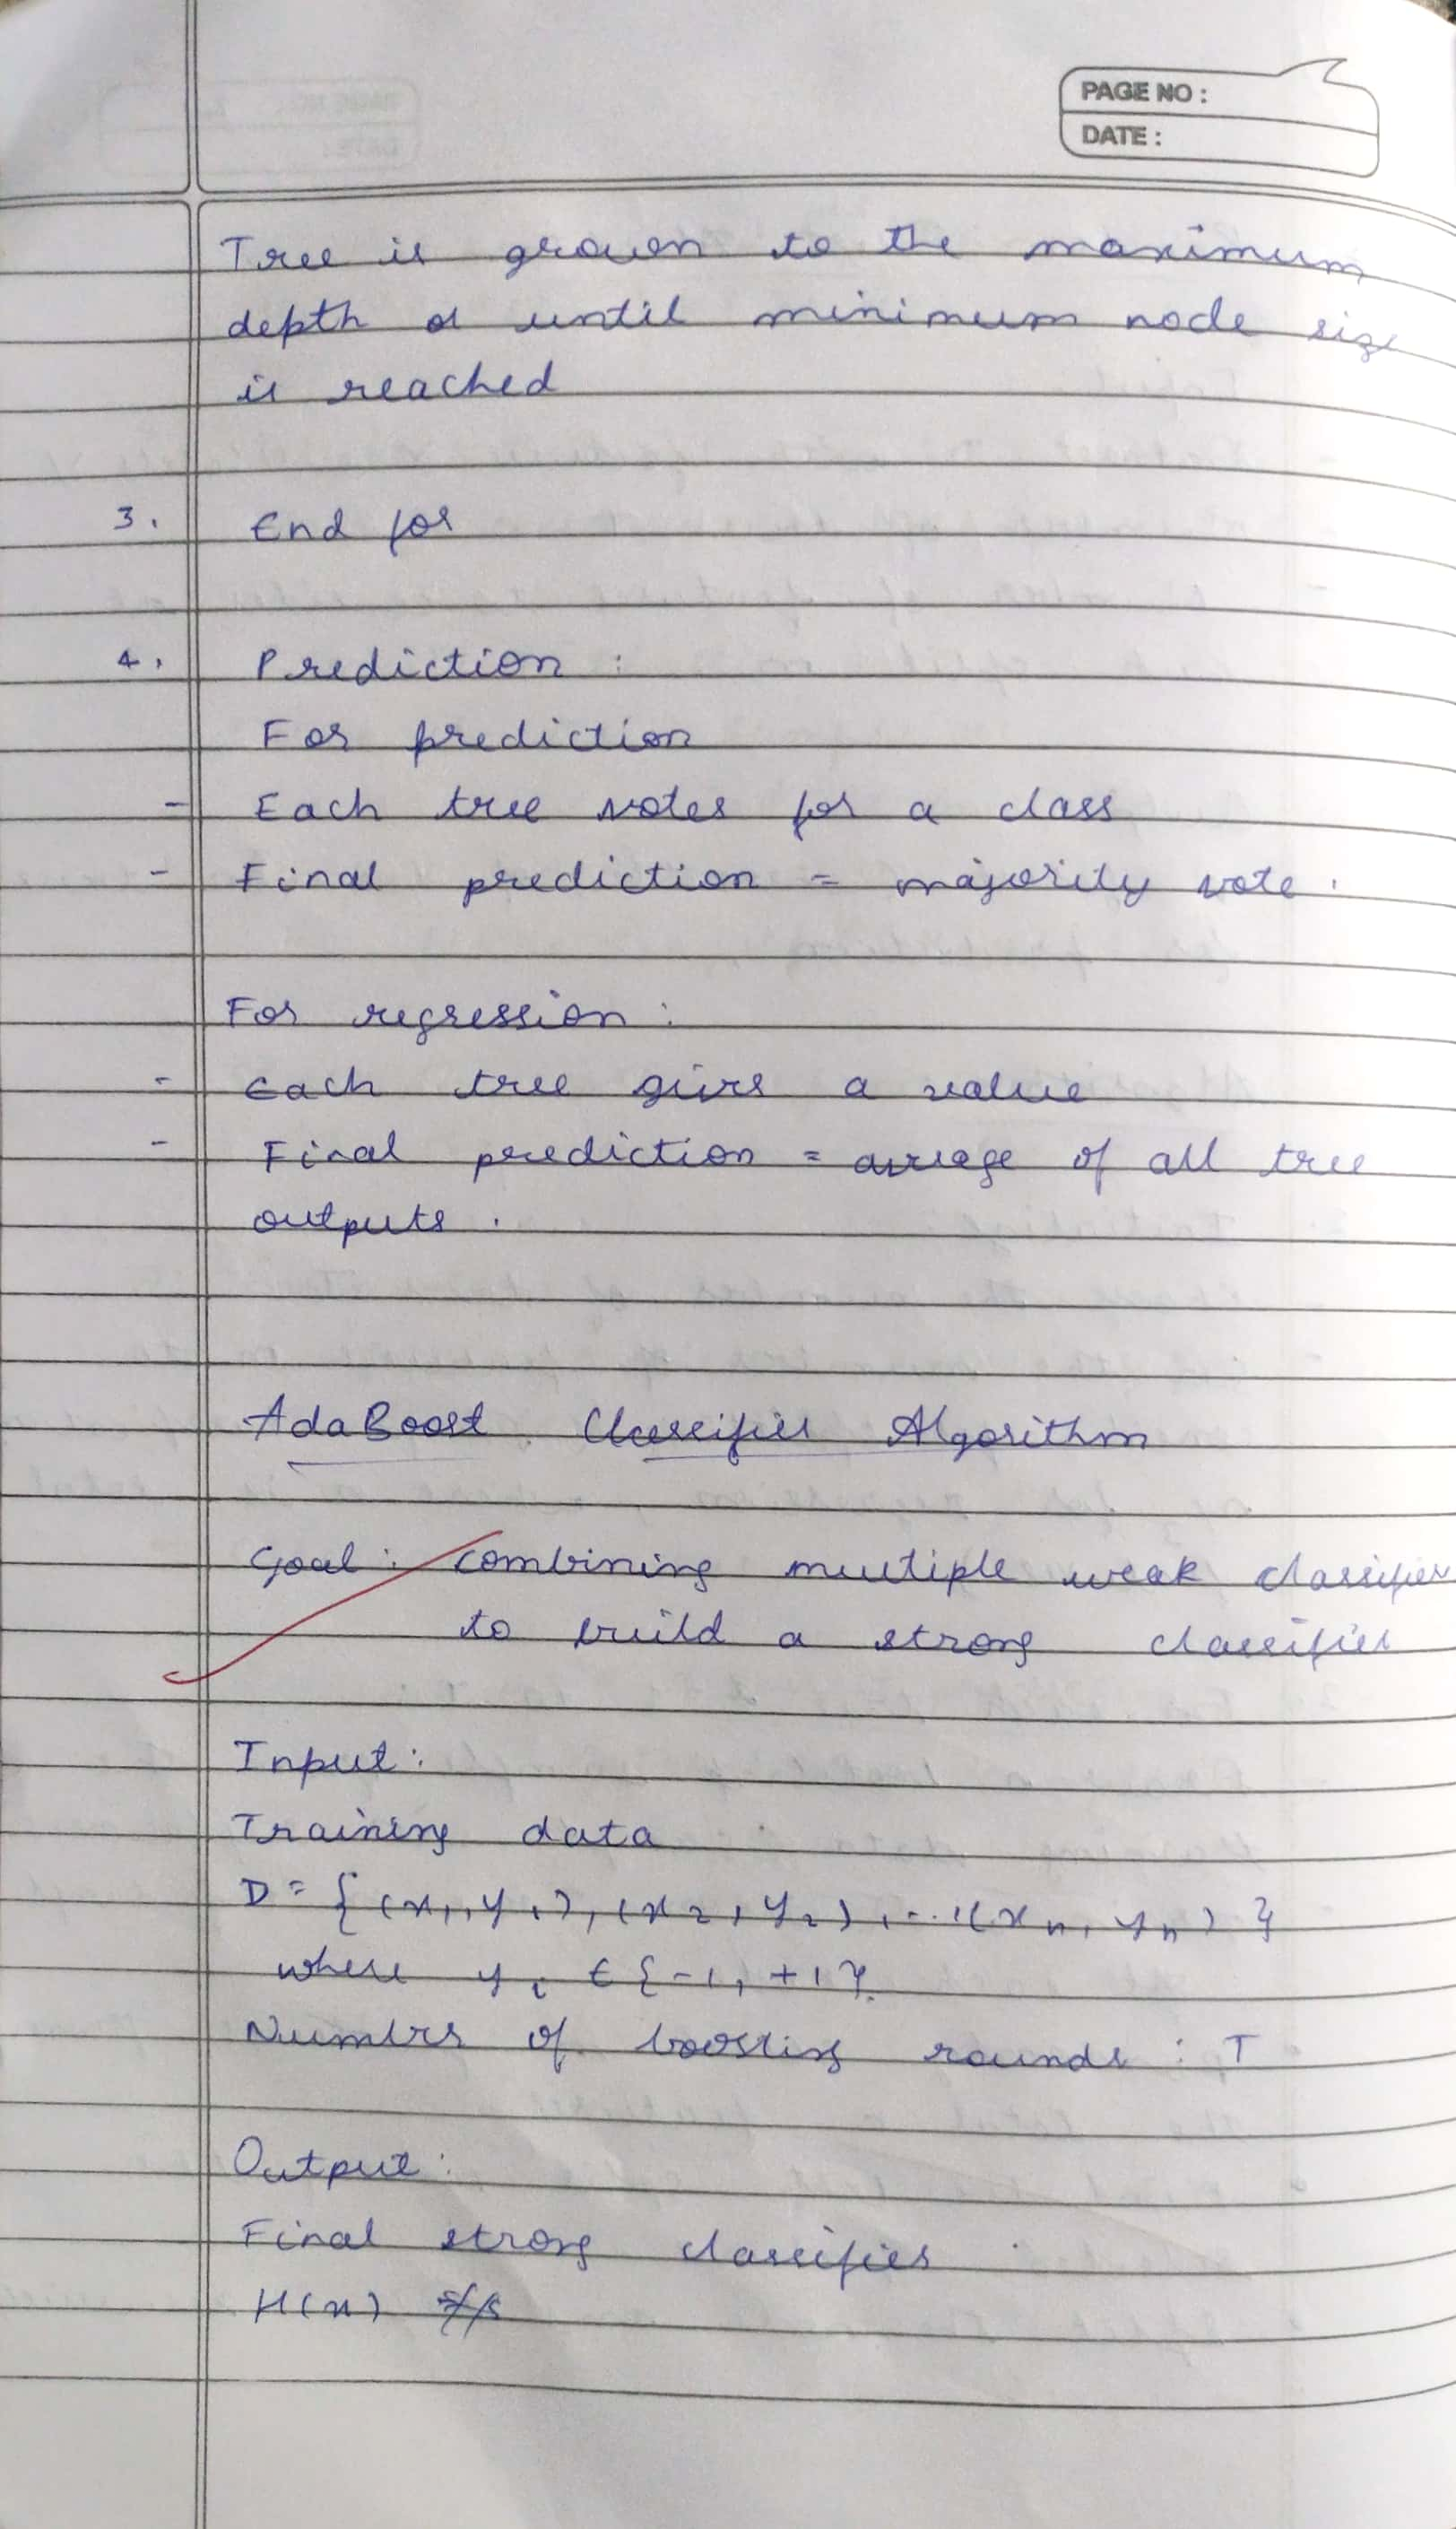 PAGE NO :
DATE :
Tree is grown to the maximum
depth or until minimum node size
is reached
3. End for
4. Prediction :
For prediction
- Each tree votes for a class
- Final prediction = majority vote.
For regression :
- Each tree gives a value
- Final prediction = average of all tree
outputs.
AdaBoost Classifier Algorithm
Goal : combining multiple weak classifier
to build a strong classifier
Input :
Training data
D = { (x₁, y₁), (x₂, y₂), ... (xₙ, yₙ) }
where yᵢ ∈ {-1, +1}.
Number of boosting rounds : T
Output :
Final strong classifier
H(x)